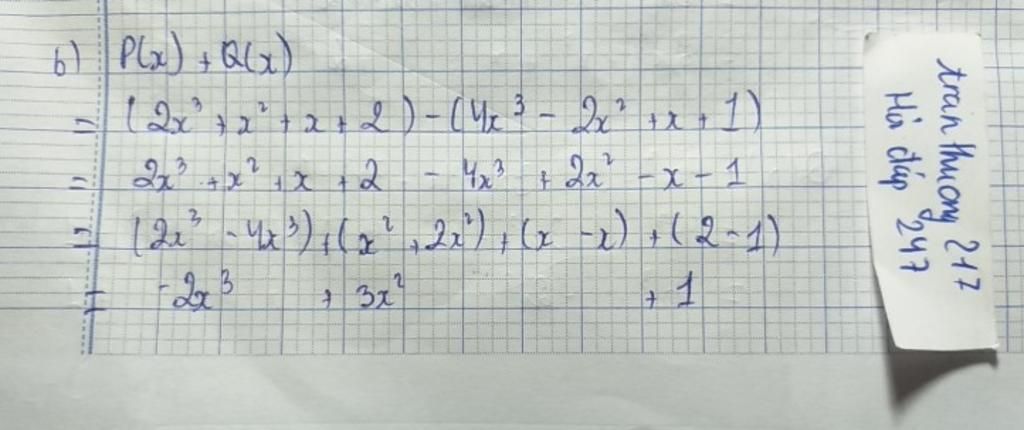 b) P(x) + Q(x)
= (2x³ + x² + x + 2) - (4x³ - 2x² + x + 1)
= 2x³ + x² + x + 2 - 4x³ + 2x² - x - 1
= (2x³ - 4x³) + (x² + 2x²) + (x - x) + (2 - 1)
= -2x³ + 3x² + 1
tran thuong 217
Hỏi đáp 247